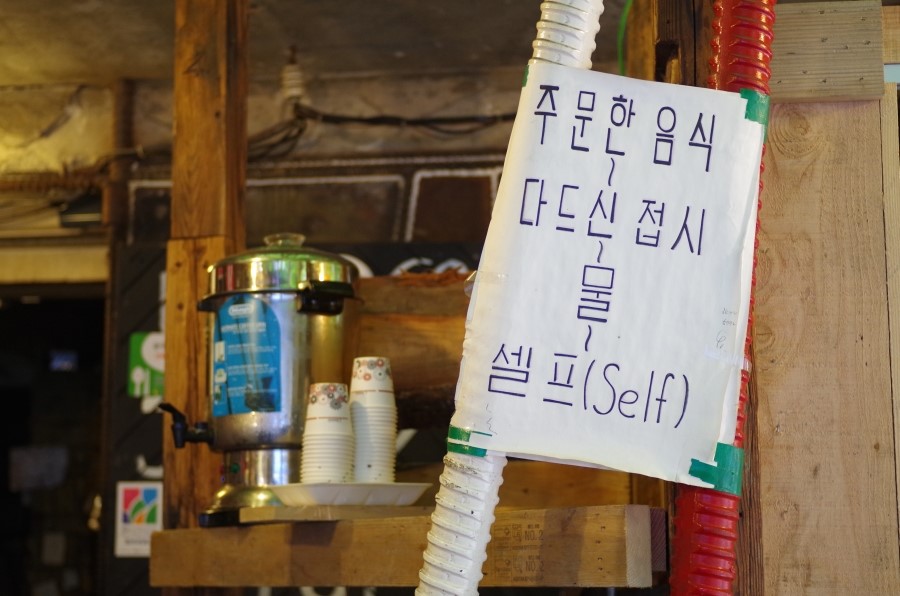 주문한 음식
~
다드신 접시
~
물
~
셀프(Self)